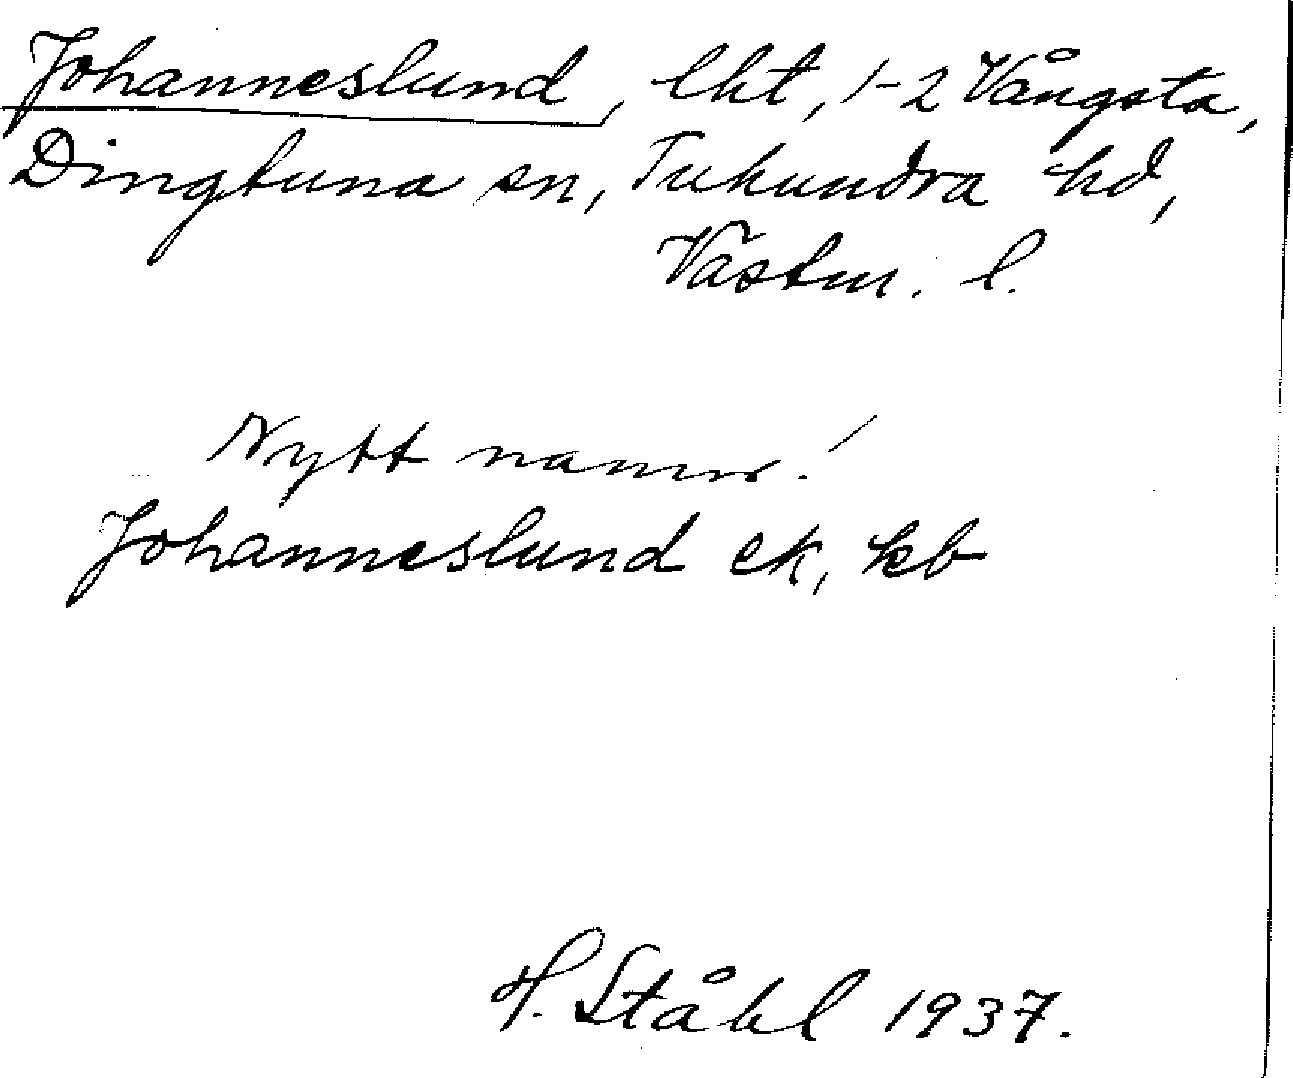 Johanneslund, lht, 1-2 Vångsta,
Dingtuna sn, Tuhundra hd,
Västm. l.
Nytt namn!
Johanneslund ek, kb
H. Ståhl 1937.